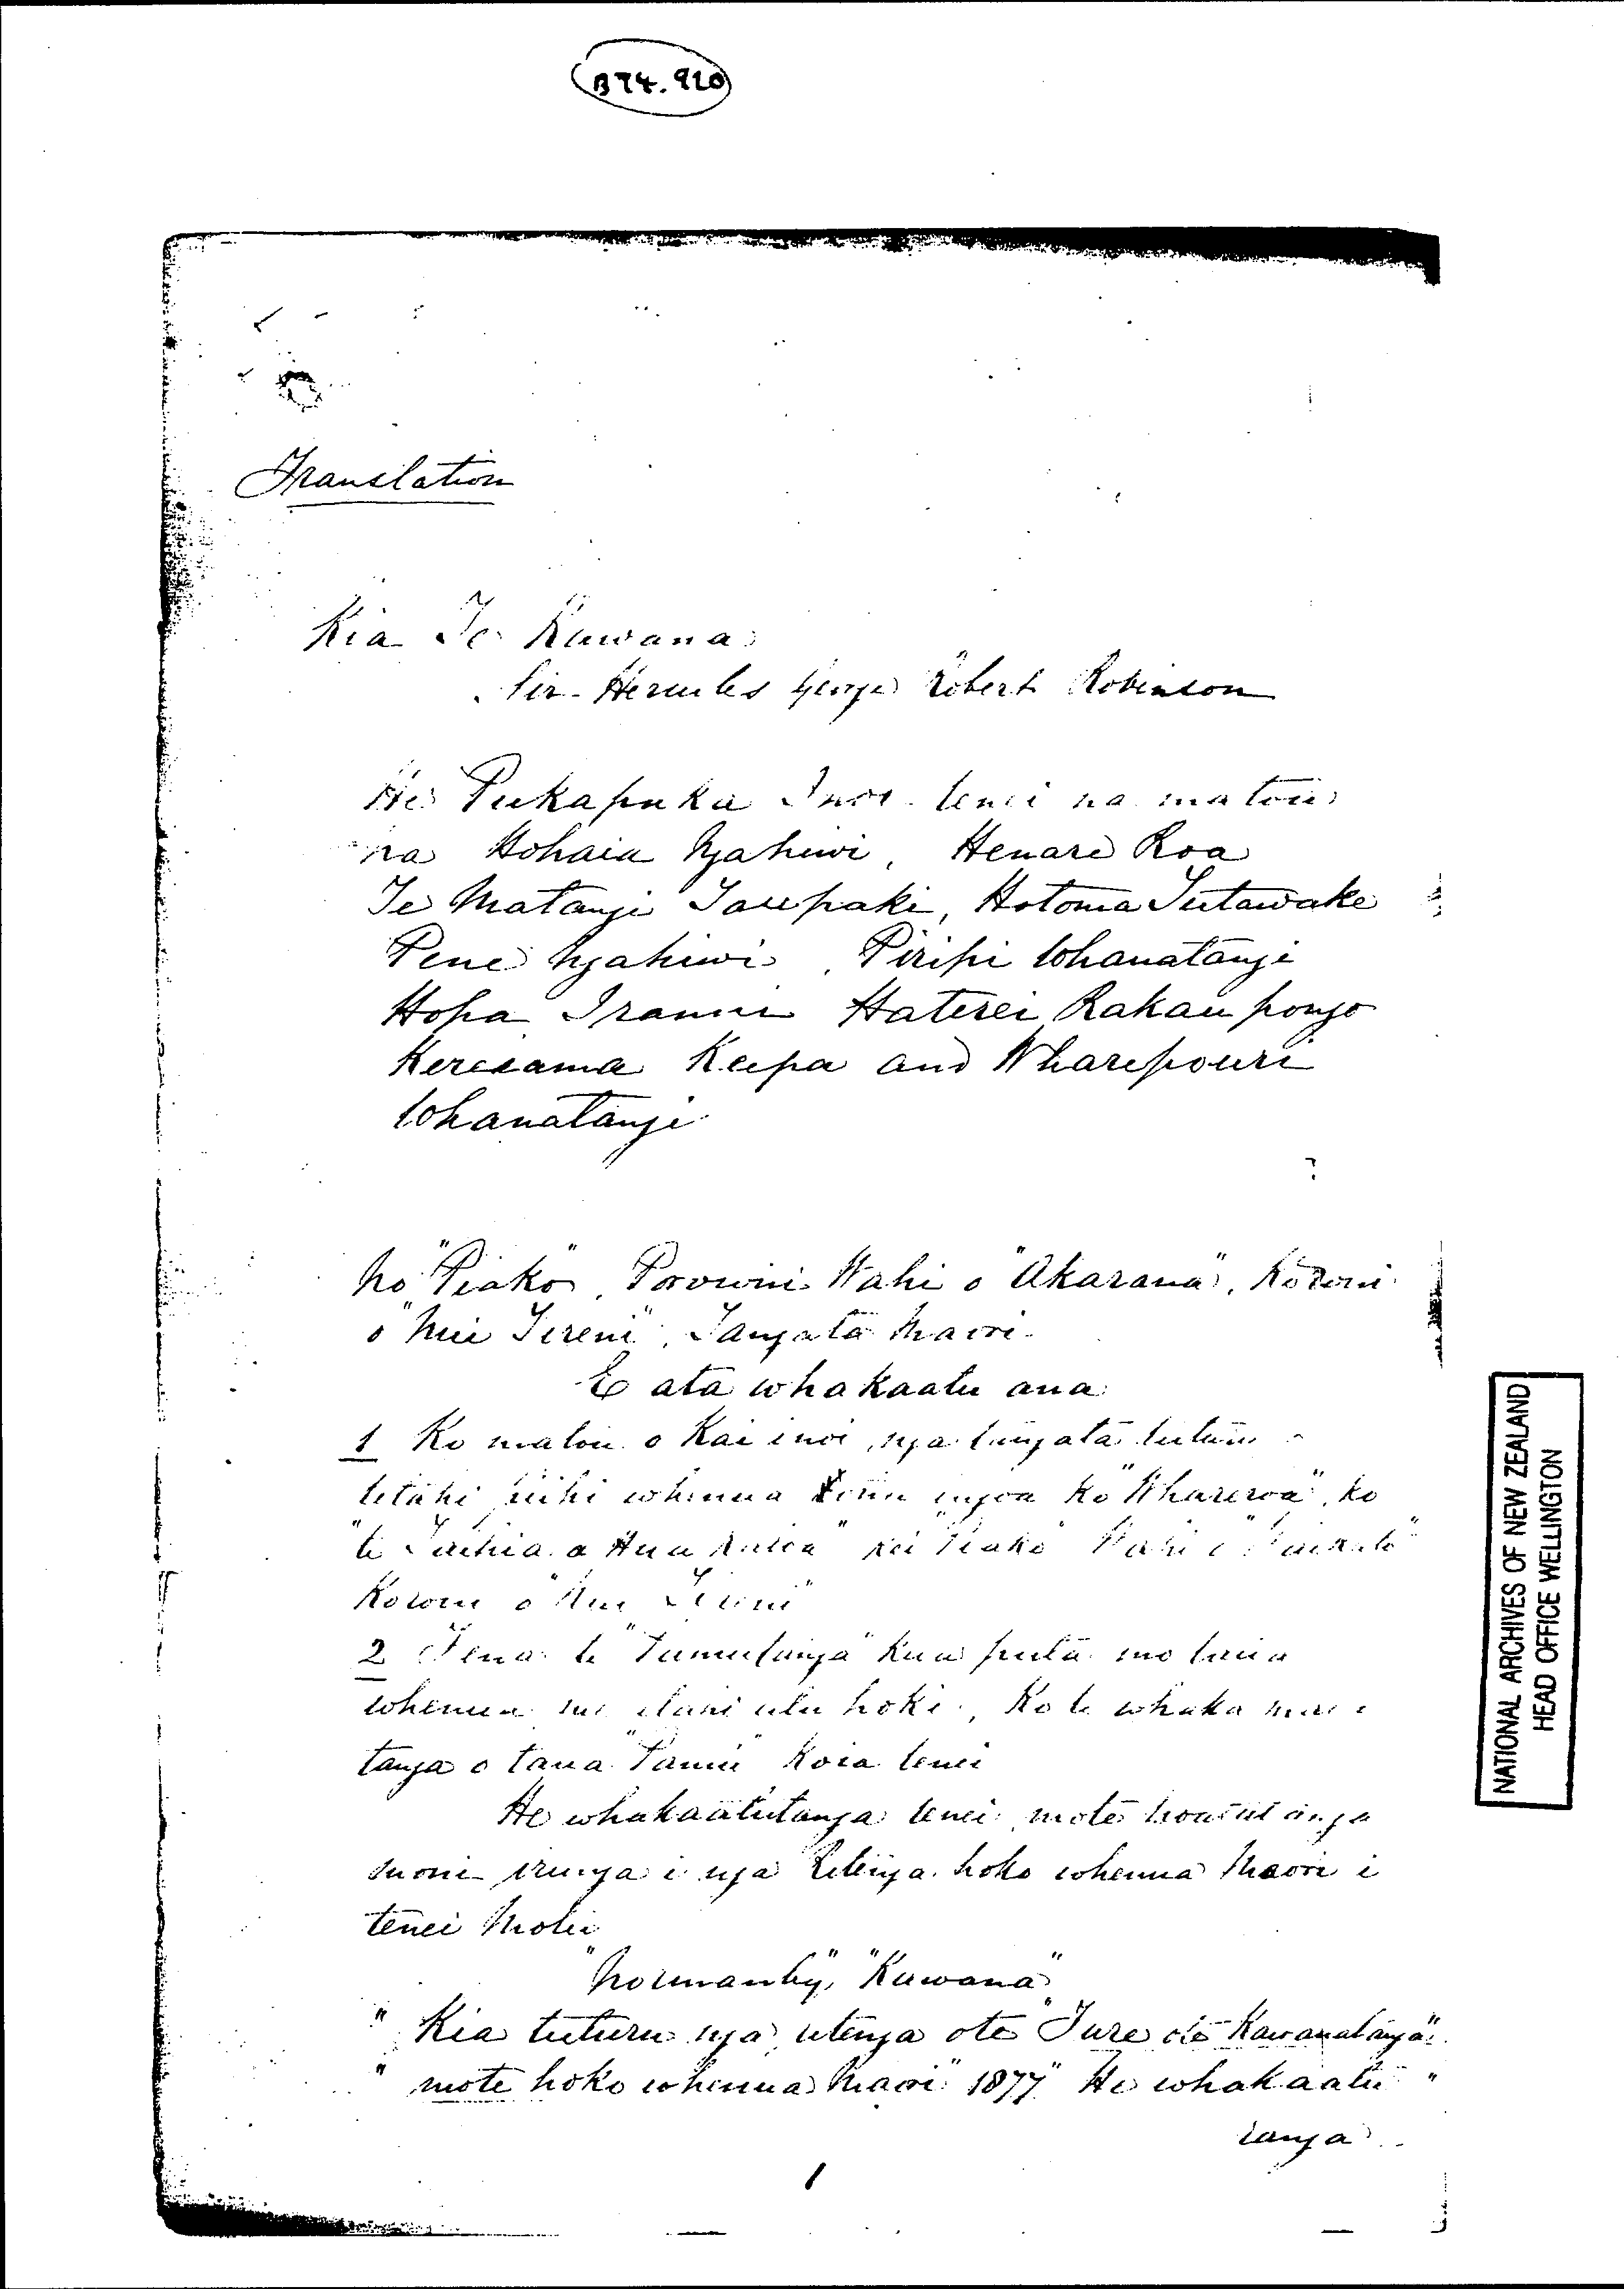 B74.920
Translation
Kia Te Kawana
Sir Hercules George Robert Robinson
He Pukapuka Inoi tenei na matou
na Hohaia Ngahiwi, Henare Roa
Te Matangi Taupaki, Hotoma Tutawake
Pene Ngahiwi, Piripi Whanatangi
Hopa Haterei Rakaupongo
Kereama Keepa and Wharepouri
Whanatangi
No "Piako", Porowini Wahi o "Akarana", Koroni
o "Niu Tireni", Tangata Maori.
E ata whakaatu ana
1 Ko matou o Kai inoi, nga tangata tuturu o
tetahi piihi whenua tona ingoa ko "Whareroa", ko
"te kei "Piako" Wahi o "Waikato"
Koroni o "Niu Tireni"
2 Tena te "Panuitanga" kua puta mo taua
whenua me etahi atu hoki, Ko te whaka mao
tanga o taua "Panui" koia tenei
He whakaatutanga tenei mote hoatutanga
moni runga i nga Ritenga hoko whenua Maori i
tenei Motu
"Normanby", "Kawana"
" Kia tuturu nga ritenga ote "Ture ote Kawanatanga"
" mote hoko whenua Maori 1877" He whakaatu "
tanga
1
NATIONAL ARCHIVES OF NEW ZEALAND
HEAD OFFICE WELLINGTON